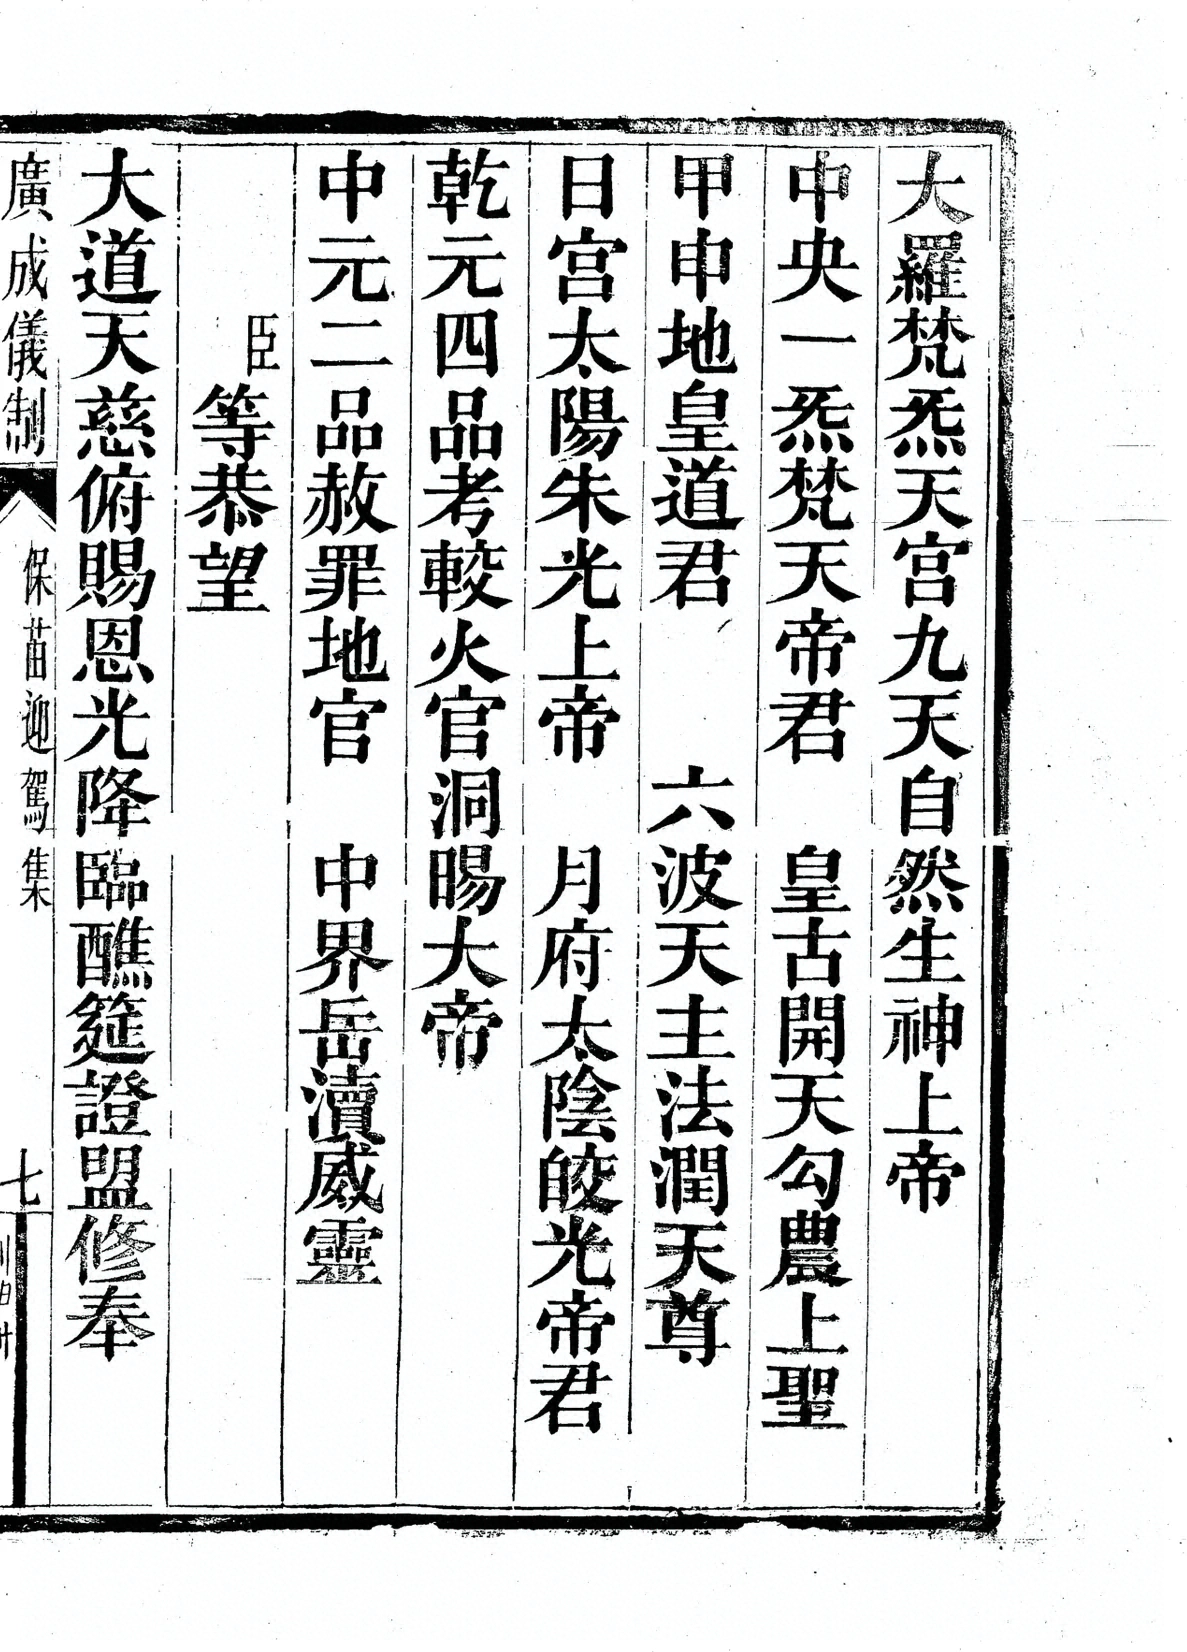 大羅梵炁天宮九天自然生神上帝
中央一炁梵天帝君　皇古開天勾農上聖
甲申地皇道君　六波天主法潤天尊
日宮太陽朱光上帝　月府太陰皎光帝君
乾元四品考較火官洞陽大帝
中元二品赦罪地官　中界岳瀆威靈
臣等恭望
大道天慈俯賜恩光降臨醮筵證盟修奉
廣成儀制　保苗迎駕集　七